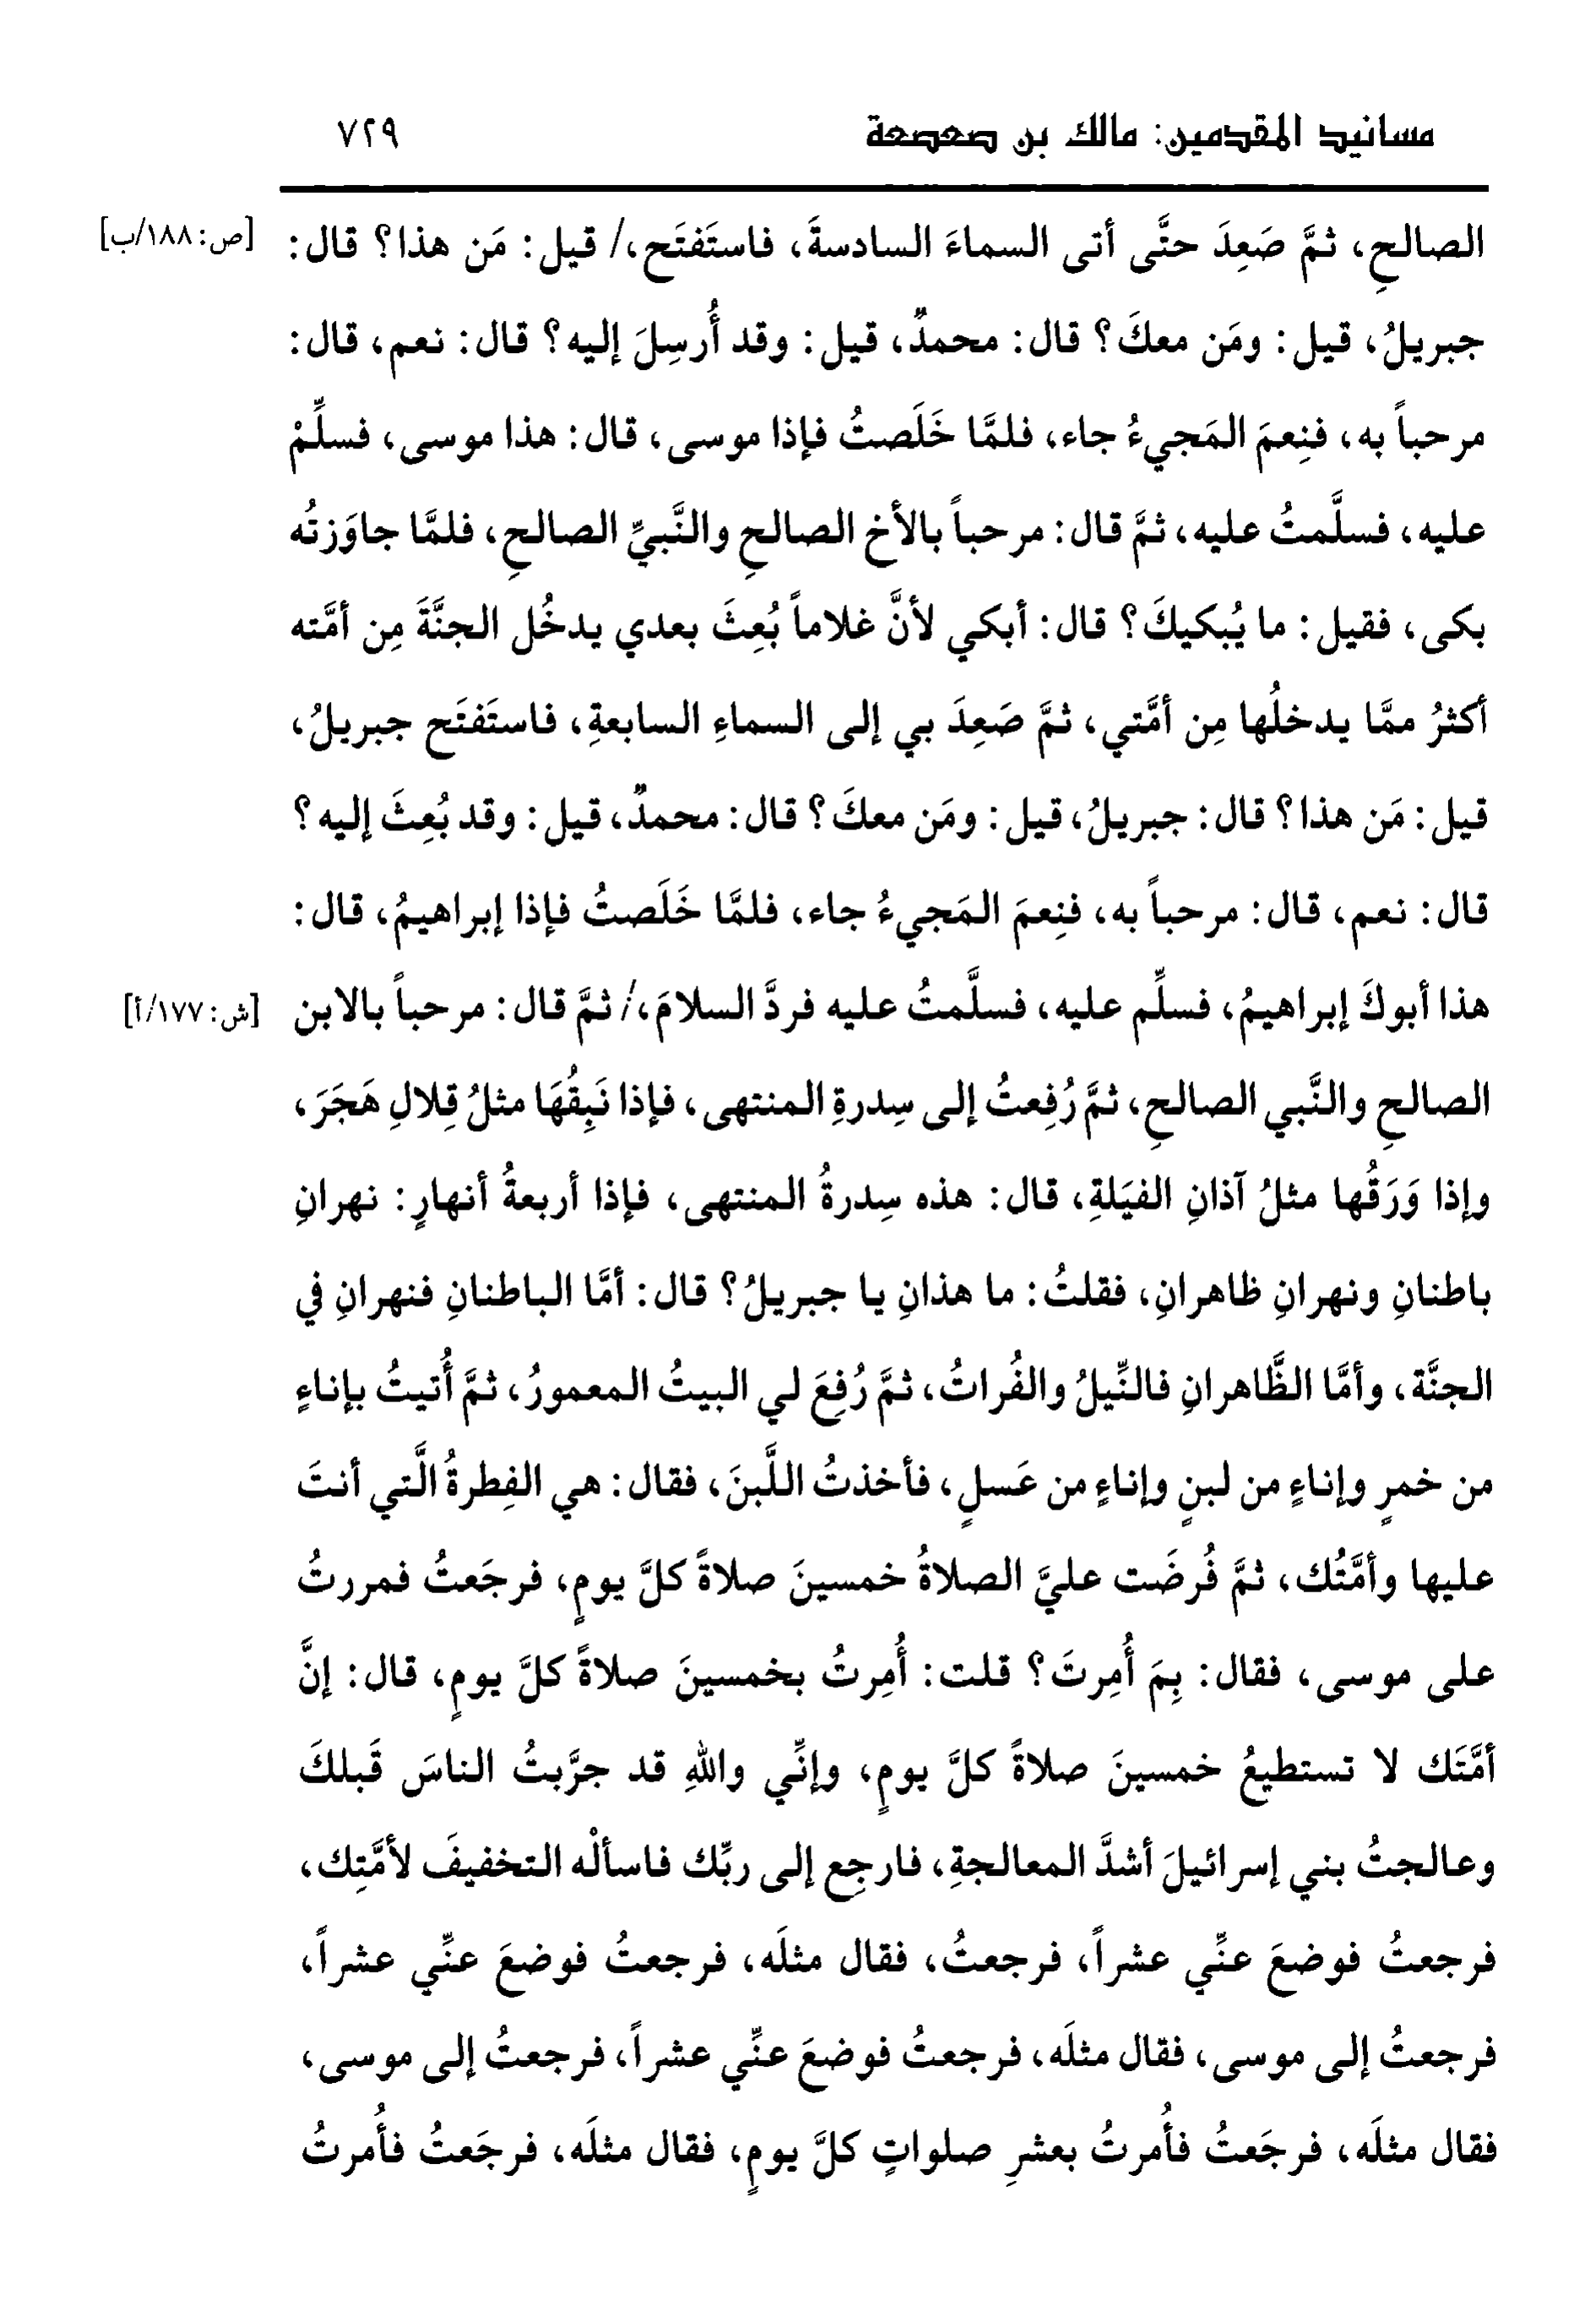 مسانيد المقدمين: مالك بن صعصعة ٧٢٩
الصالحِ، ثمَّ صَعِدَ حتَّى أتى السماءَ السادسةَ، فاستَفتَح،/ قيل: مَن هذا؟ قال: [ص: ١٨٨/ب]
جبريلُ، قيل: ومَن معكَ؟ قال: محمدٌ، قيل: وقد أُرسِلَ إليه؟ قال: نعم، قال:
مرحباً به، فنِعمَ المَجيءُ جاء، فلمَّا خَلَصتُ فإذا موسى، قال: هذا موسى، فسلِّمْ
عليه، فسلَّمتُ عليه، ثمَّ قال: مرحباً بالأخ الصالحِ والنَّبيِّ الصالحِ، فلمَّا جاوَزتُه
بكى، فقيل: ما يُبكيكَ؟ قال: أبكي لأنَّ غلاماً بُعِثَ بعدي يدخُل الجنَّةَ مِن أمَّته
أكثرُ ممَّا يدخلُها مِن أمَّتي، ثمَّ صَعِدَ بي إلى السماءِ السابعةِ، فاستَفتَح جبريلُ،
قيل: مَن هذا؟ قال: جبريلُ، قيل: ومَن معكَ؟ قال: محمدٌ، قيل: وقد بُعِثَ إليه؟
قال: نعم، قال: مرحباً به، فنِعمَ المَجيءُ جاء، فلمَّا خَلَصتُ فإذا إبراهيمُ، قال:
هذا أبوكَ إبراهيمُ، فسلِّم عليه، فسلَّمتُ عليه فردَّ السلامَ،/ ثمَّ قال: مرحباً بالابن [ش: ١٧٧/أ]
الصالحِ والنَّبي الصالحِ، ثمَّ رُفِعتُ إلى سِدرةِ المنتهى، فإذا نَبِقُهَا مثلُ قِلالِ هَجَرَ،
وإذا وَرَقُها مثلُ آذانِ الفيَلةِ، قال: هذه سِدرةُ المنتهى، فإذا أربعةُ أنهارٍ: نهرانِ
باطنانِ ونهرانِ ظاهرانِ، فقلتُ: ما هذانِ يا جبريلُ؟ قال: أمَّا الباطنانِ فنهرانِ في
الجنَّة، وأمَّا الظَّاهرانِ فالنِّيلُ والفُراتُ، ثمَّ رُفِعَ لي البيتُ المعمورُ، ثمَّ أُتيتُ بإناءٍ
من خمرٍ وإناءٍ من لبنٍ وإناءٍ من عَسلٍ، فأخذتُ اللَّبنَ، فقال: هي الفِطرةُ الَّتي أنتَ
عليها وأمَّتُك، ثمَّ فُرضَت عليَّ الصلاةُ خمسينَ صلاةً كلَّ يومٍ، فرجَعتُ فمررتُ
على موسى، فقال: بِمَ أُمِرتَ؟ قلت: أُمِرتُ بخمسينَ صلاةً كلَّ يومٍ، قال: إنَّ
أمَّتَك لا تستطيعُ خمسينَ صلاةً كلَّ يومٍ، وإنِّي واللهِ قد جرَّبتُ الناسَ قَبلكَ
وعالجتُ بني إسرائيلَ أشدَّ المعالجةِ، فارجِع إلى ربِّك فاسألْه التخفيفَ لأمَّتِك،
فرجعتُ فوضعَ عنِّي عشراً، فرجعتُ، فقال مثلَه، فرجعتُ فوضعَ عنِّي عشراً،
فرجعتُ إلى موسى، فقال مثلَه، فرجعتُ فوضعَ عنِّي عشراً، فرجعتُ إلى موسى،
فقال مثلَه، فرجَعتُ فأُمرتُ بعشرِ صلواتٍ كلَّ يومٍ، فقال مثلَه، فرجَعتُ فأُمرتُ